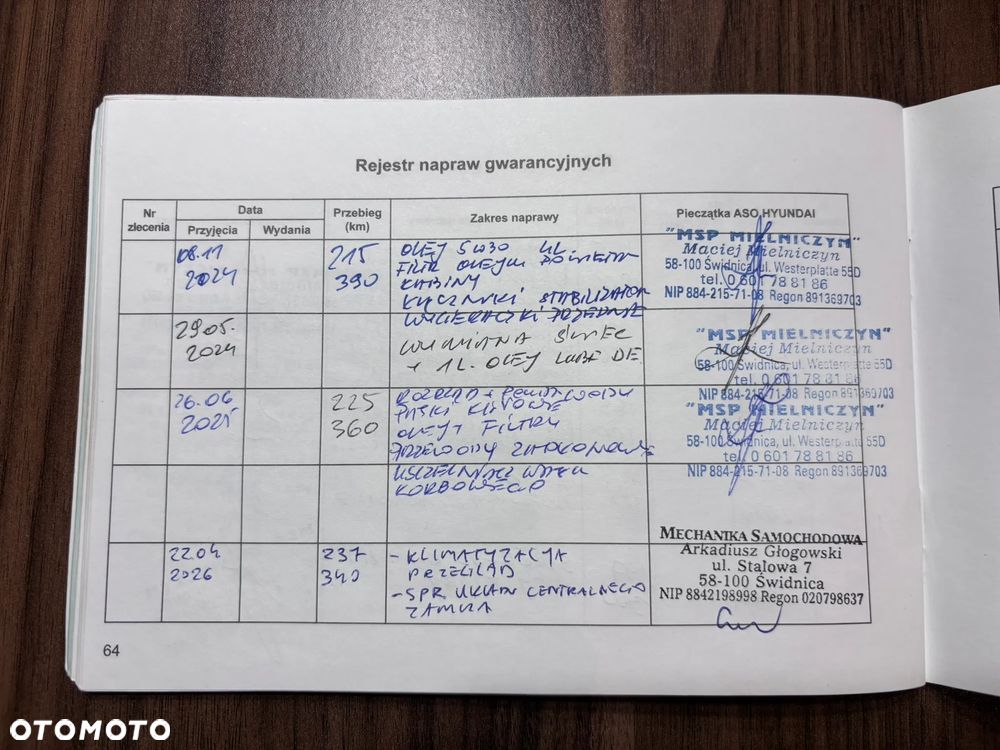 Rejestr napraw gwarancyjnych
Nr zlecenia
Data
Przyjęcia
Wydania
Przebieg (km)
Zakres naprawy
Pieczątka ASO HYUNDAI
08.11
2024
215
390
OLEJ 5W30
FILTR OLEJU POWIETRZA
KABINY
STABILIZATOR
WYCIERACZKI PRZEDNIE
"MSP MIELNICZYN"
Maciej Mielniczyn
58-100 Świdnica, ul. Westerplatte 55D
tel. 0 601 78 81 86
NIP 884-215-71-08 Regon 891369703
29.05.
2024
WYMIANA ŚWIEC
+ 1L. OLEJ
"MSP MIELNICZYN"
Maciej Mielniczyn
58-100 Świdnica, ul. Westerplatte 55D
tel. 0 601 78 81 86
NIP 884-215-71-08 Regon 891369703
26.06
2025
225
360
ROZRZĄD +
PASKI KLINOWE
OLEJ + FILTRY
PRZEWODY ZAPŁONOWE
"MSP MIELNICZYN"
Maciej Mielniczyn
58-100 Świdnica, ul. Westerplatte 55D
tel. 0 601 78 81 86
NIP 884-215-71-08 Regon 891369703
USZCZELNIACZ WAŁU
KORBOWEGO
22.04
2026
237
340
- KLIMATYZACJA
PRZEGLĄD
- SPR. UKŁADU CENTRALNEGO
ZAMKA
MECHANIKA SAMOCHODOWA
Arkadiusz Głogowski
ul. Stalowa 7
58-100 Świdnica
NIP 8842198998 Regon 020798637
64
OTOMOTO